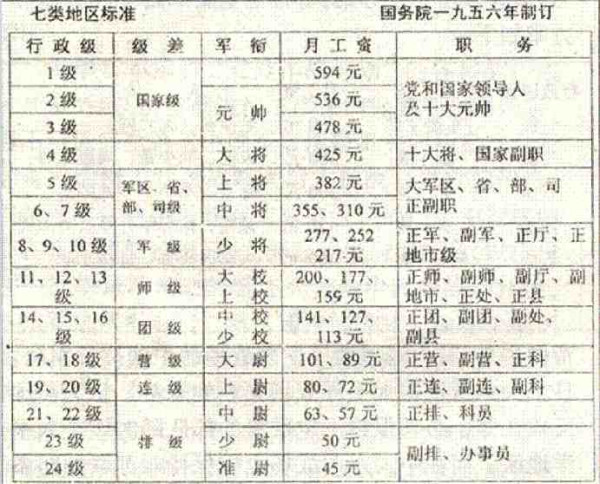 七类地区标准 国务院一九五六年制订
行政级 级差 军衔 月工资 职务
1级 国家级 594元 党和国家领导人及十大元帅
2级 元帅 536元
3级 478元
4级 大将 425元 十大将、国家副职
5级 军区、省、部、司级 上将 382元 大军区、省、部、司正副职
6、7级 中将 355、310元
8、9、10级 军级 少将 277、252 217元 正军、副军、正厅、正地市级
11、12、13级 师级 大校 上校 200、177、159元 正师、副师、副厅、副地市、正处、正县
14、15、16级 团级 中校 少校 141、127、113元 正团、副团、副处、副县
17、18级 营级 大尉 101、89元 正营、副营、正科
19、20级 连级 上尉 80、72元 正连、副连、副科
21、22级 排级 中尉 63、57元 正排、科员
23级 少尉 50元 副排、办事员
24级 准尉 45元